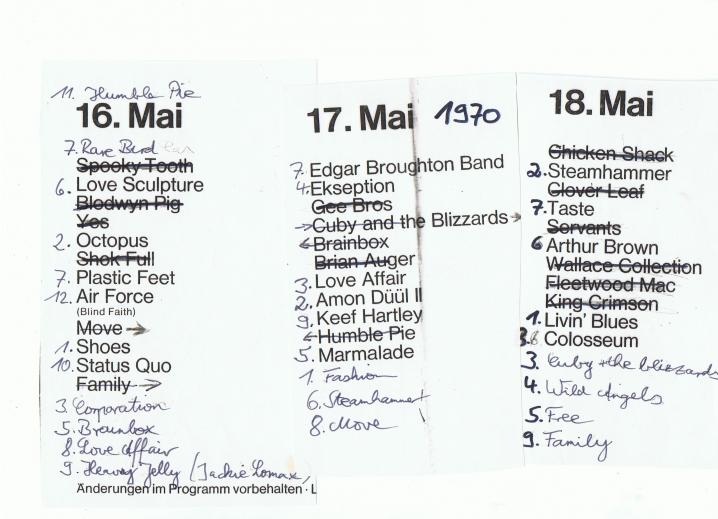 11. Humble Pie
16. Mai
7. Rare Bird
Spooky Tooth
6. Love Sculpture
Blodwyn Pig
Yes
2. Octopus
Shok Full
7. Plastic Feet
12. Air Force
(Blind Faith)
Move →
1. Shoes
10. Status Quo
Family →
3. Corporation
5. Brainbox
8. Love Affair
9. Heavy Jelly (Jackie Lomax,
Änderungen im Programm vorbehalten · L
17. Mai 1970
7. Edgar Broughton Band
4. Ekseption
Gee Bros
→ Cuby and the Blizzards →
← Brainbox
Brian Auger
3. Love Affair
2. Amon Düül II
9. Keef Hartley
← Humble Pie
5. Marmalade
1. Fashion
6. Steamhammer
8. Move
18. Mai
Chicken Shack
2. Steamhammer
Clover Leaf
7. Taste
Servants
6 Arthur Brown
Wallace Collection
Fleetwood Mac
King Crimson
1. Livin' Blues
8 Colosseum
3. Cuby + the blizzards
4. Wild Angels
5. Free
9. Family